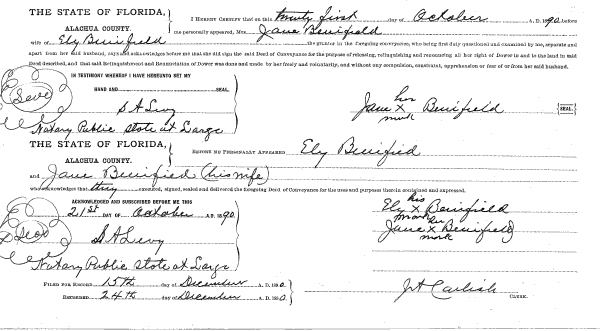 THE STATE OF FLORIDA,
ALACHUA COUNTY.
I HEREBY CERTIFY that on this twenty first day of October A. D. 1890 before
me personally appeared, Mrs. Jane Benifield
wife of Ely Benifield the grantor in the foregoing conveyance, who being first duly questioned and examined by me, separate and
apart from her said husband, says and acknowledges before me that she did sign the said Deed of Conveyance for the purpose of releasing, relinquishing and renouncing all her right of Dower in and to the land in said
Deed described, and that said Relinquishment and Renunciation of Dower was done and made by her freely and voluntarily, and without any compulsion, constraint, apprehension or fear of or from her said husband.
IN TESTIMONY WHEREOF I HAVE HEREUNTO SET MY
HAND AND SEAL.
Seal
S A Levy
Notary Public State at Large
her
Jane X Benifield
mark
SEAL
THE STATE OF FLORIDA,
ALACHUA COUNTY.
BEFORE ME PERSONALLY APPEARED Ely Benifield
and Jane Benifield (his wife)
who acknowledges that they executed, signed, sealed and delivered the foregoing Deed of Conveyance for the uses and purposes therein contained and expressed.
ACKNOWLEDGED AND SUBSCRIBED BEFORE ME THIS
21st DAY OF October A. D. 1890
Seal
S A Levy
Notary Public State at Large
his
Ely X Benifield
mark her
Jane X Benifield
mark
FILED FOR RECORD 15th day of December A. D. 1890
RECORDED 24th day of December A. D. 1890
CLERK.